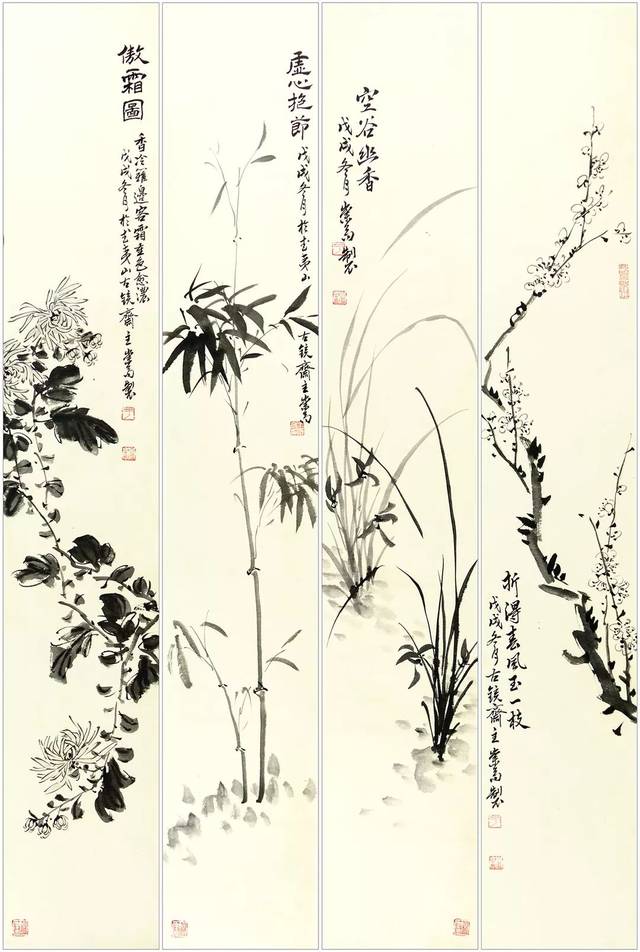 折得春風玉一枝
戊戌冬月古鏡齋主崇高製
空谷幽香
戊戌冬月崇高製
虛心抱節
戊戌冬月於武夷山
古鏡齋主崇高
傲霜圖
香冷籬邊客霜重色愈濃
戊戌冬月於武夷山古鏡齋主崇高製